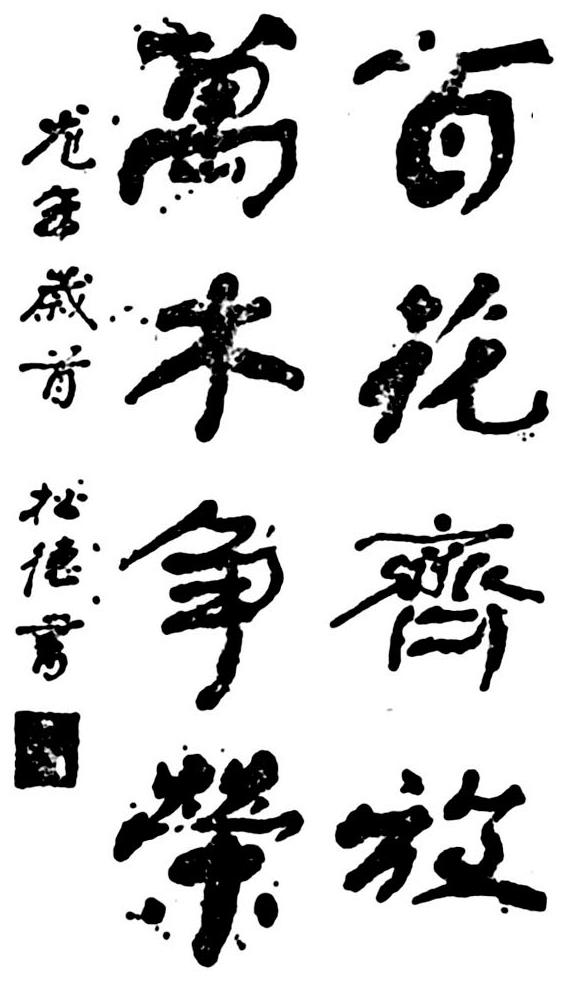 百花齊放
萬木争榮
龙年歲首
松德書